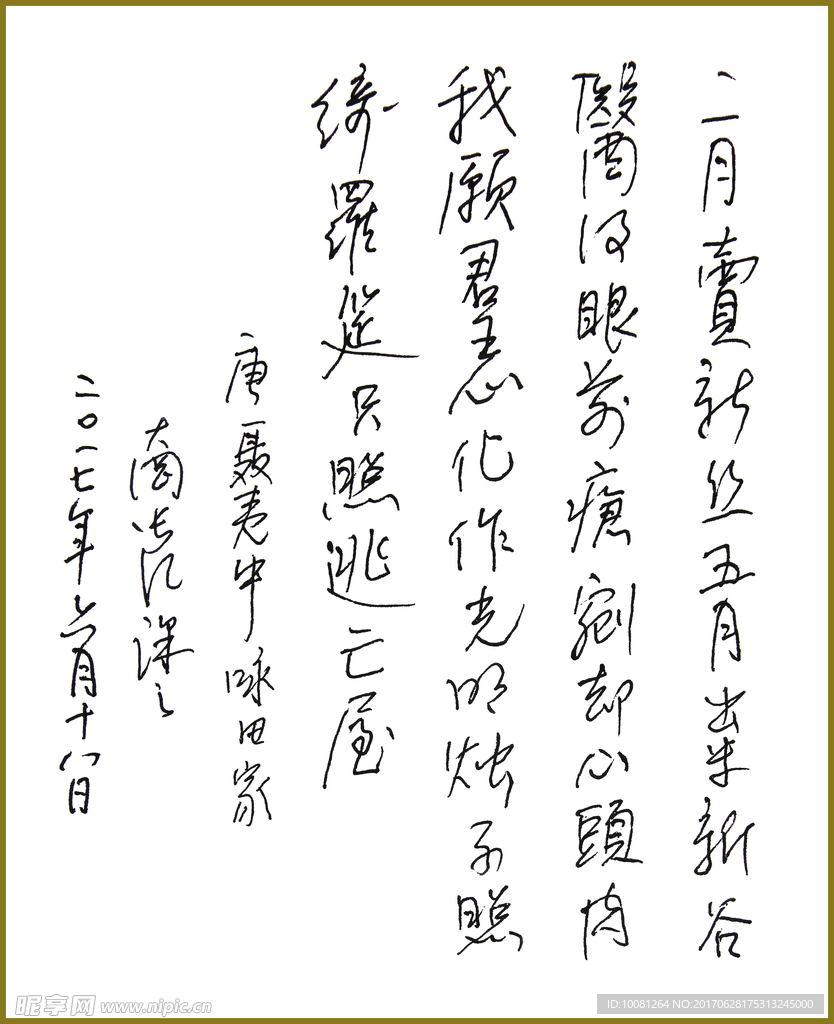 二月賣新丝五月粜新谷
醫得眼前瘡剜却心頭肉
我願君王心化作光明烛不照
綺羅筵只照逃亡屋
唐聂夷中咏田家
二〇一七年六月十八日
昵享网 www.nipic.cn
ID:10081264 NO:20170628175313245000